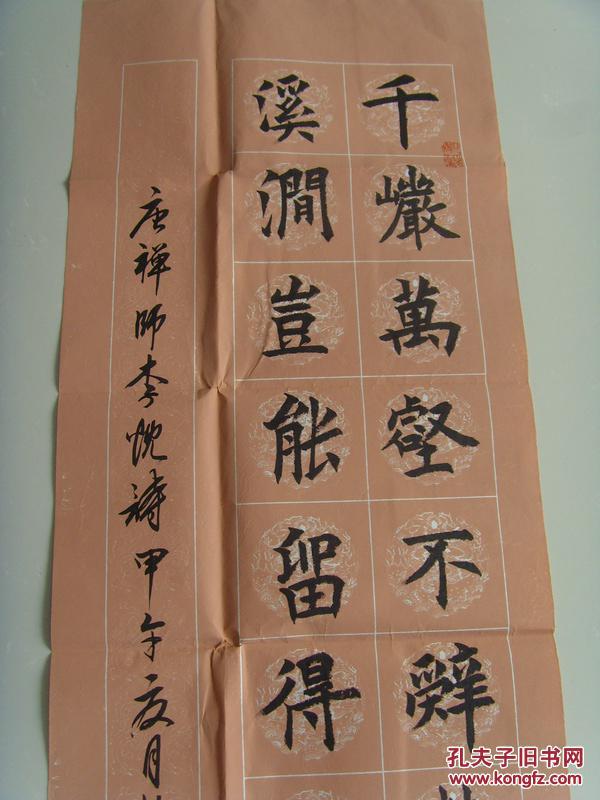 千巖萬壑不辤
溪澗豈能留得
唐禅师李忱詩甲午夏月
孔夫子旧书网
www.kongfz.com